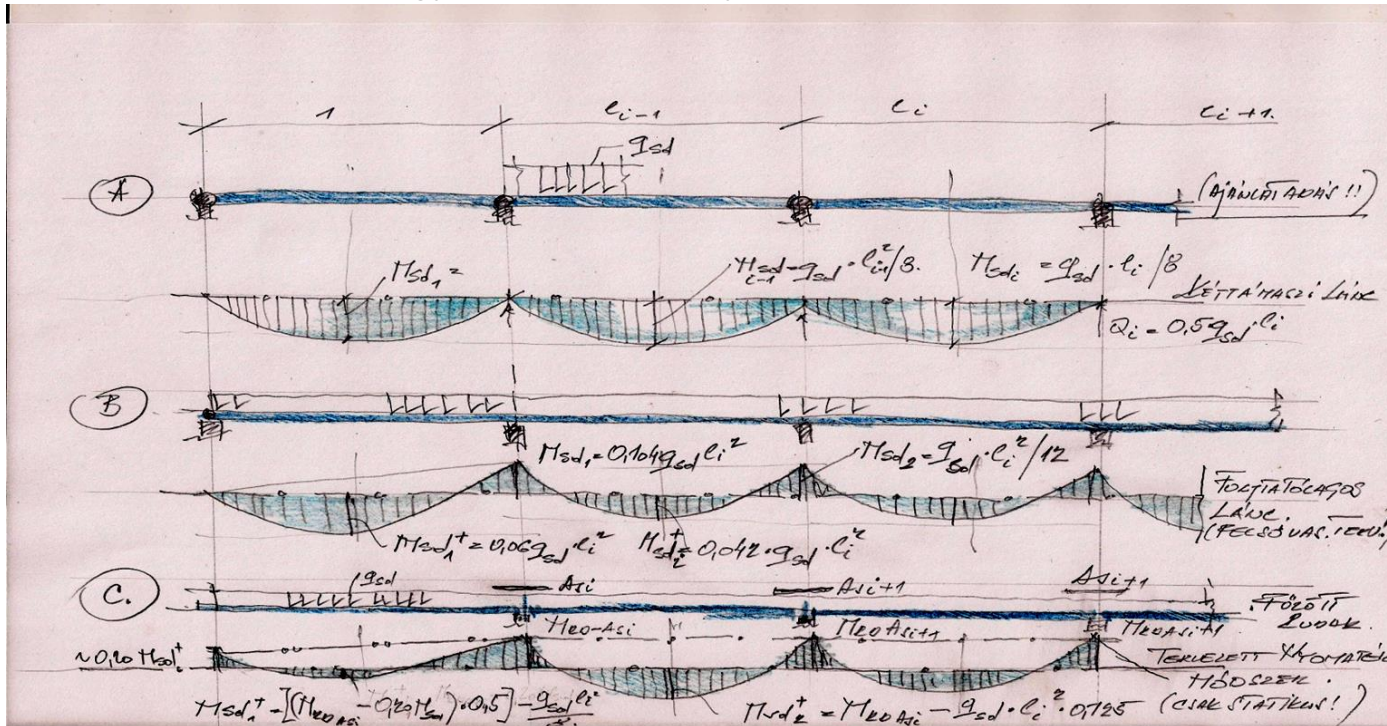 1 li-1 li li+1.
qsd
A (AJÁNLATADÁS!!)
Msd1 = Msd i-1 = qsd · li-1²/8. Msdi = qsd · li/8
KÉTTÁMASZÚ LÁNC
Qi = 0,5 qsd · li
B
Msd1 = 0,104 qsd li² Msd2 = qsd · li²/12
FOLYTATÓLAGOS
LÁNC.
(FELSŐ VAS. TERV.)
Msd1+ = 0,06 qsd · li² Msd2+ = 0,042 · qsd · li²
C. qsd Asi Asi+1 Asi+1
FŰZÖTT
RUDAK.
MRD-Asi MRDAsi+1 MRDAsi+1
~0,20 Msd+
TERVEZETT NYOMATÉKI
MÓDSZER.
(CSAK STATIKUS!)
Msd1+ = [(MRDAsi - 0,20 Msd1) · 0,5] - qsd li²/8
Msd2+ = MRDAsi - qsd · li² · 0,125